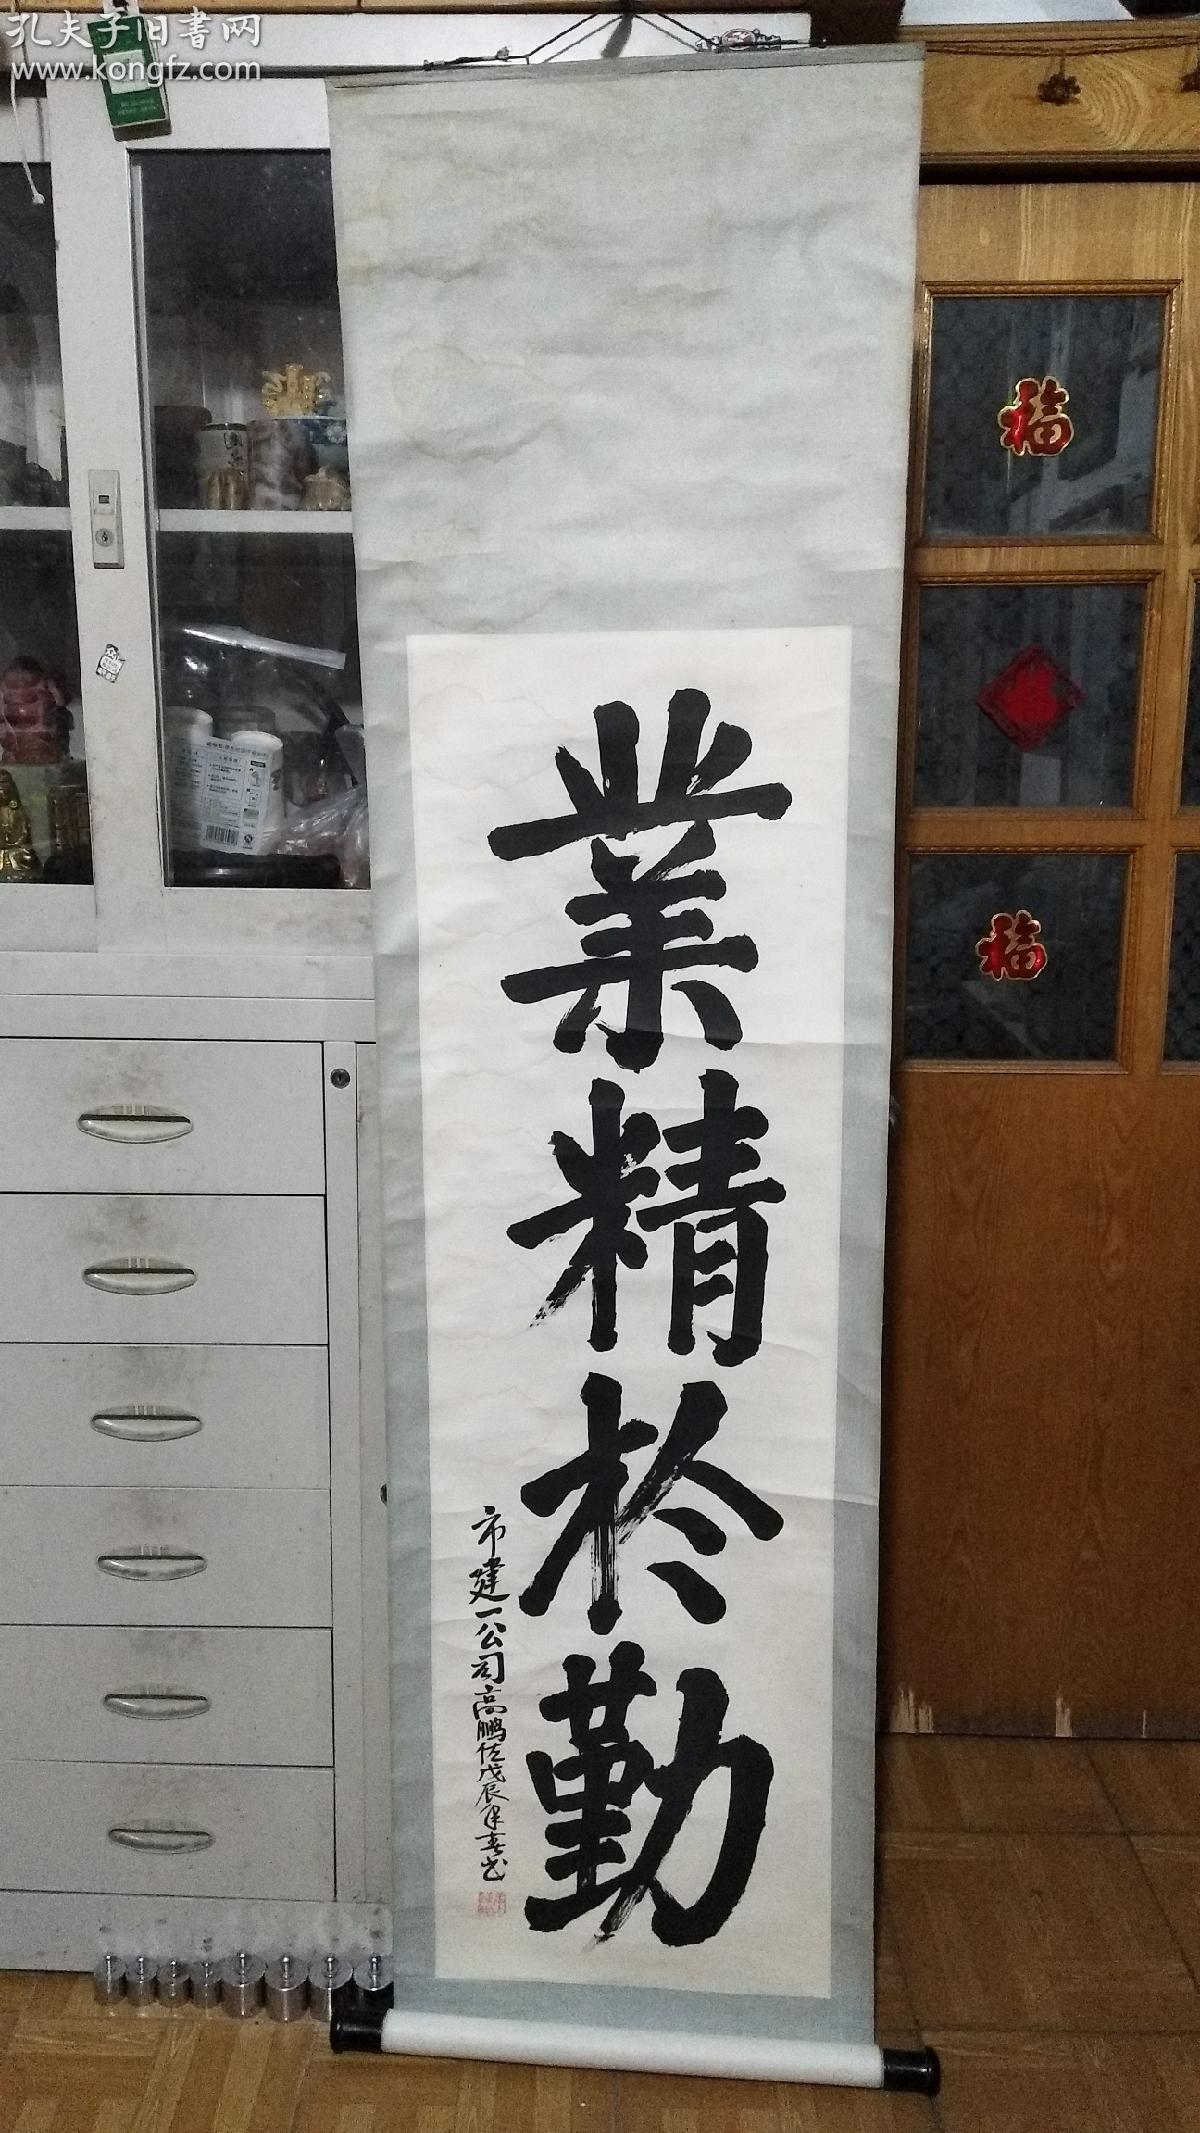 孔夫子旧書网
www.kongfz.com
業精於勤
市建一公司高鵬佐戊辰年春书
福
福